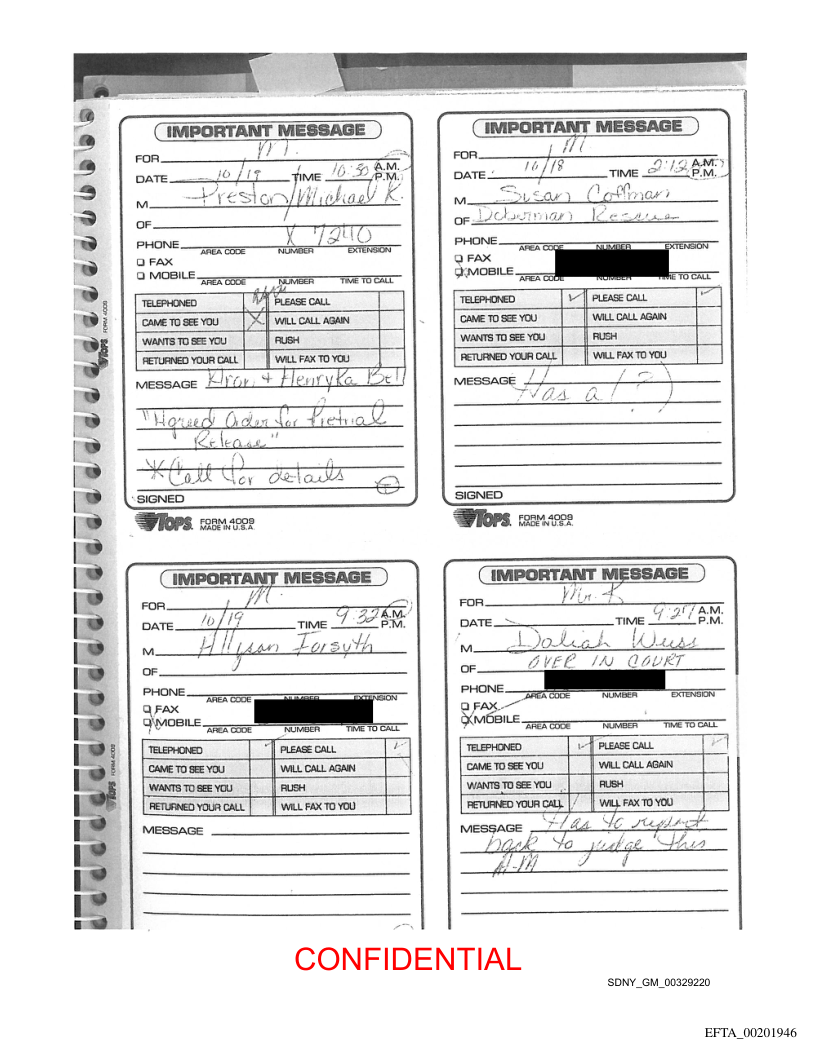 IMPORTANT MESSAGE
FOR M.
DATE 10/19 TIME 10:30 A.M. P.M.
M Preston/Michael K.
OF
PHONE X 7240
AREA CODE NUMBER EXTENSION
FAX
MOBILE
AREA CODE NUMBER TIME TO CALL
TELEPHONED PLEASE CALL
CAME TO SEE YOU X WILL CALL AGAIN
WANTS TO SEE YOU RUSH
RETURNED YOUR CALL WILL FAX TO YOU
MESSAGE + Henryka Bell
"Agreed Order for Pretrial
Release"
*Call for details
SIGNED
TOPS FORM 4009
MADE IN U.S.A.
IMPORTANT MESSAGE
FOR M
DATE 10/18 TIME 2:12 A.M. P.M.
M Susan Coffman
OF Doberman Rescue
PHONE
AREA CODE NUMBER EXTENSION
FAX
MOBILE
AREA CODE NUMBER TIME TO CALL
TELEPHONED ✓ PLEASE CALL ✓
CAME TO SEE YOU WILL CALL AGAIN
WANTS TO SEE YOU RUSH
RETURNED YOUR CALL WILL FAX TO YOU
MESSAGE Has a (?)
SIGNED
TOPS FORM 4009
MADE IN U.S.A.
TOPS FORM 4009
IMPORTANT MESSAGE
FOR M.
DATE 10/19 TIME 9:32 A.M. P.M.
M Allyson Forsyth
OF
PHONE
AREA CODE NUMBER EXTENSION
FAX
MOBILE
AREA CODE NUMBER TIME TO CALL
TELEPHONED ✓ PLEASE CALL ✓
CAME TO SEE YOU WILL CALL AGAIN
WANTS TO SEE YOU RUSH
RETURNED YOUR CALL WILL FAX TO YOU
MESSAGE
TOPS FORM 4009
IMPORTANT MESSAGE
FOR Mr. K
DATE TIME 9:27 A.M. P.M.
M Daliah Weiss
OF OVER IN COURT
PHONE
AREA CODE NUMBER EXTENSION
FAX
MOBILE
AREA CODE NUMBER TIME TO CALL
TELEPHONED ✓ PLEASE CALL ✓
CAME TO SEE YOU WILL CALL AGAIN
WANTS TO SEE YOU RUSH
RETURNED YOUR CALL WILL FAX TO YOU
MESSAGE Has to report
back to judge this
A.M
CONFIDENTIAL
SDNY_GM_00329220
EFTA_00201946